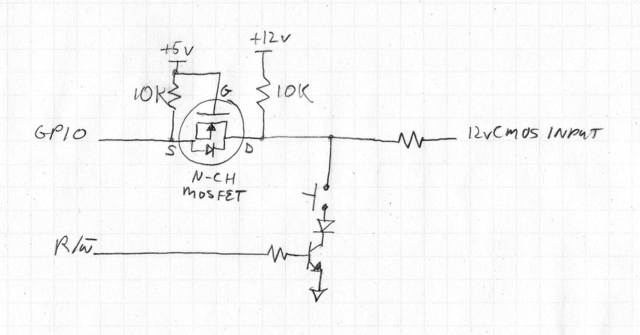 +5V
+12V
10K
G
10K
GPIO
S
D
12V CMOS INPUT
N-CH
MOSFET
R/W̅